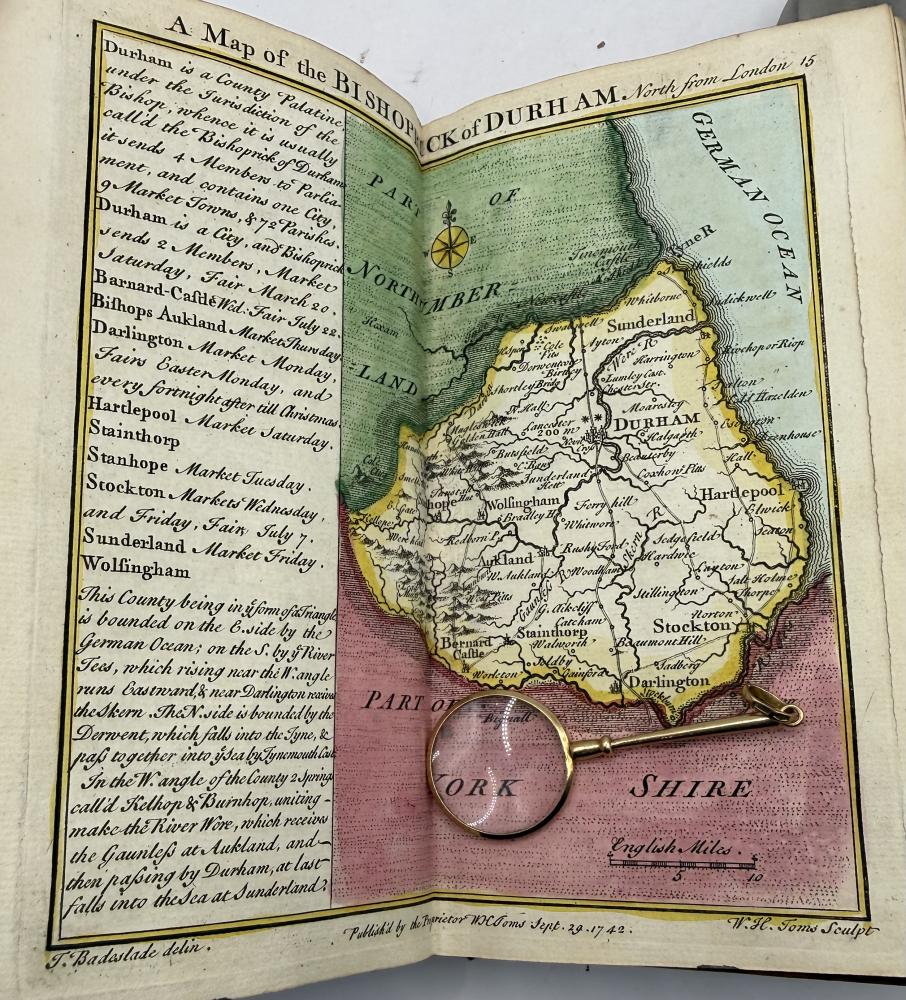 A Map of the BISHOPRICK of DURHAM North from London 15
Durham is a County Palatine,
under the Jurisdiction of the
Bishop, whence it is usually
call'd the Bishoprick of Durham
it sends 4 Members to Parlia-
ment, and contains one City,
9 Market Towns, & 72 Parishes.
Durham is a City, and Bishoprick
sends 2 Members, Market
Saturday, Fair March 20.
Barnard-Castle Wed. Fair July 22.
Bishops Aukland Market Thursday
Darlington Market Monday,
Fairs Easter Monday, and
every fortnight after till Christmas
Hartlepool Market Saturday.
Stainthorp
Stanhope Market Tuesday.
Stockton Markets Wednesday,
and Friday, Fair, July 7.
Sunderland Market Friday.
Wolsingham
This County being in ye form of a Triangle
is bounded on the E. side by the
German Ocean; on the S. by ye River
Tees, which rising near the W. angle
runs Eastward, & near Darlington receives
the Skern. The N. side is bounded by the
Derwent, which falls into the Tyne, &
pass together into ye Sea by Tynemouth Cast.
In the W. angle of the County 2 Springs
call'd Kelhop & Burnhop, uniting-
make the River Were, which receives
the Gaunless at Aukland, and-
then passing by Durham, at last
falls into the Sea at Sunderland.
PART OF
NORTHUMBER-
LAND
E
W
S
GERMAN OCEAN
Tinmouth
Castle
Tyne R
Shields
Newcastle
Hexam
Whitborne
Swalwell
Sunderland
Cole
Pits
Ayton
Were R
Harrington
Derwentcote
Birtley
Lumley Cast.
Chester Str.
Shortley Bridg
Dalton
Lancester
200 m
DURHAM
Halgarth
Butsfield
Beauterby
Hall
Sunderland
Hett
Coxhow Pits
Hartlepool
Wolsingham
Ferryhill
Elwick
Bradley H
Whitworth
Skern R
Seaton
Redborn
Rushy Ford
Sedgefield
Hardwic
Aukland
W. Aukland
Woodham
Stillington
Salt Holme
Thorpe
Gaunless
Aikcliff
Norton
Catcham
Stockton
Bernard
Castle
Stainthorp
Walworth
Beaumont Hill
Sadberg
Worleton
Gainford
Darlington
PART OF
YORK SHIRE
English Miles.
5 10
T. Badeslade delin.
Publish'd by the Proprietor W.H. Toms Sept. 29. 1742.
W. H. Toms Sculpt